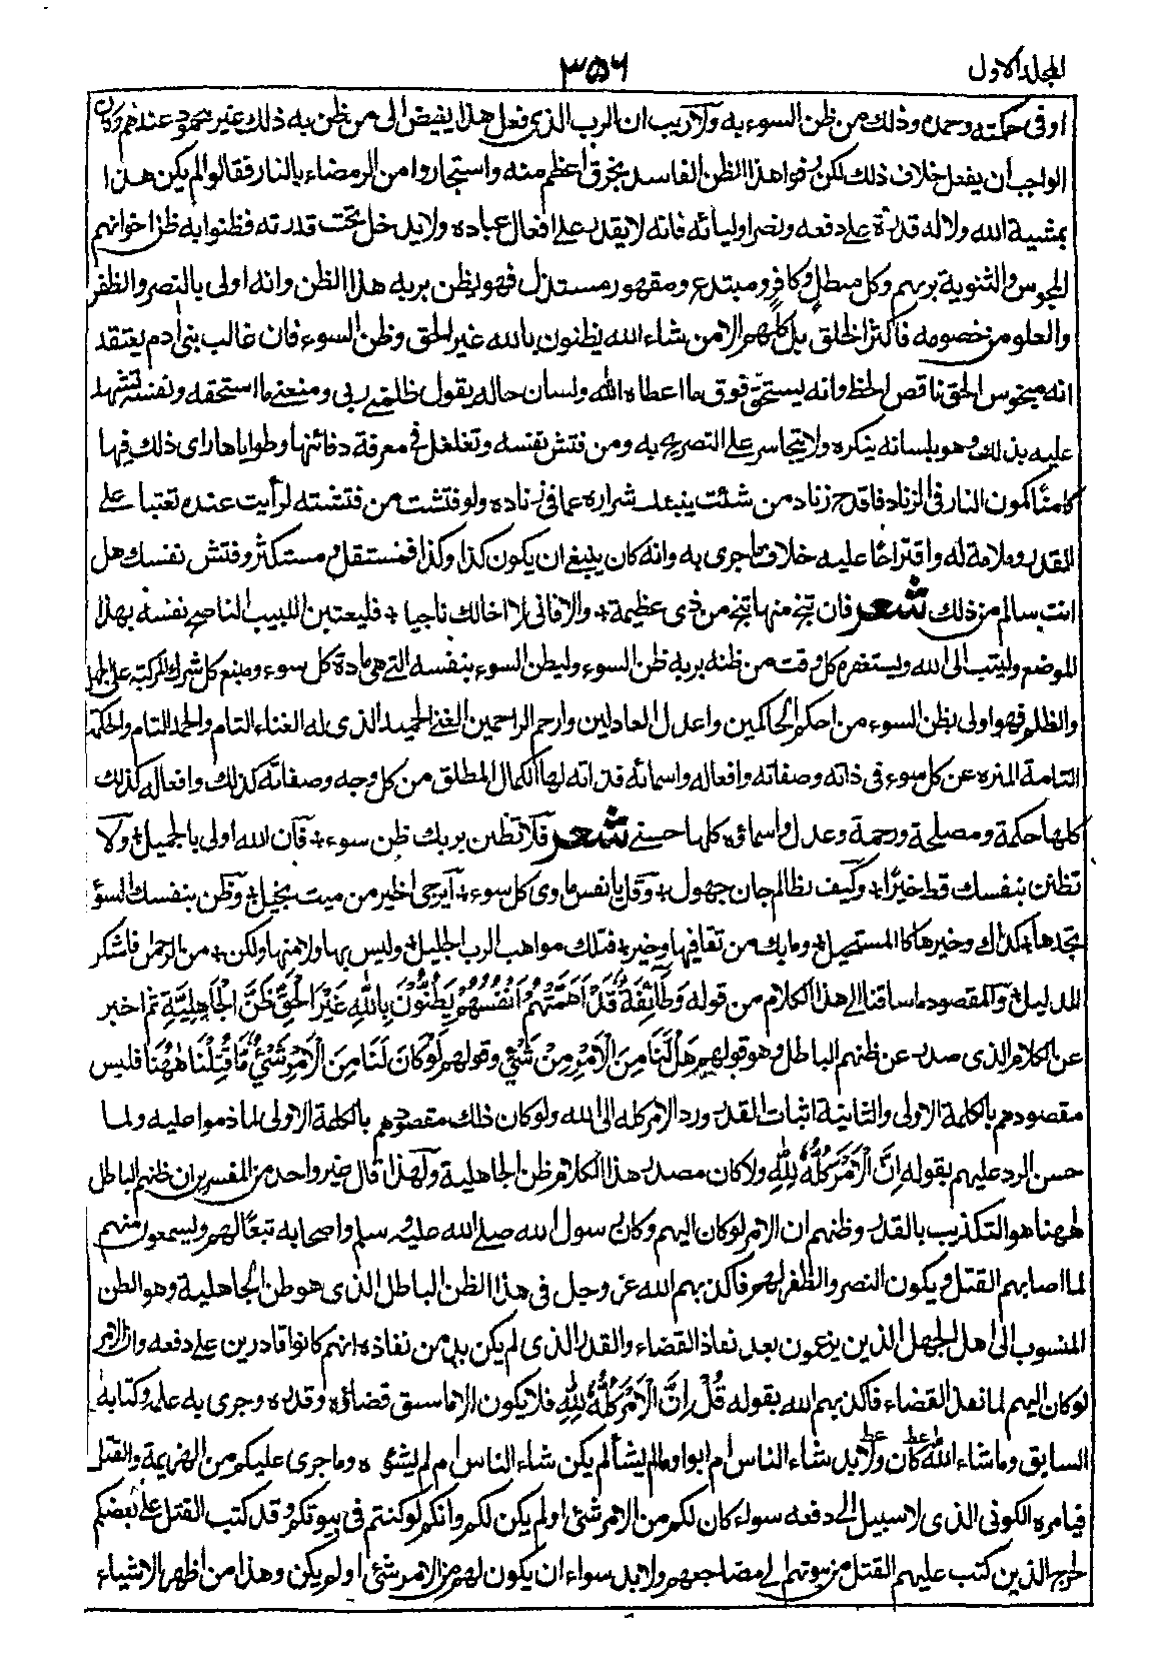 المجلد الاول
٣٥٦
او فى حكمته وحمده وذلك من ظن السوء به ولا ريب ان الرب الذى فعل هذا بغيض الى من ظن به ذلك غير محمود عندهم وكان
الواجب أن يفعل خلاف ذلك لكن رفوا هذا الظن الفاسد بخرق اعظم منه واستجاروا من الرمضاء بالنار فقالوا لم يكن هذا
بمشية الله ولا له قدرة على دفعه ونصر اوليائه فانه لا يقدر على افعال عباده ولا يدخل تحت قدرته فظنوا به ظن اخوانهم
المجوس والثنوية بربهم وكل مبطل وكافر ومبتدع ومقهور مستذل فهو يظن بربه هذا الظن وانه اولى بالنصر والظفر
والعلو من خصومه فأكثر الخلق بل كلهم الا من شاء الله يظنون بالله غير الحق وظن السوء فان غالب بنى ادم يعتقد
انه مبخوس الحق ناقص الحظ وانه يستحق فوق ما اعطاه الله ولسان حاله يقول ظلمنے ربى ومنعنے ما استحقه ونفسه تشهد
عليه بذلك وهو بلسانه ينكره ولا يتجاسر على التصريح به ومن فتش نفسه وتغلغل فى معرفة دفائنها وطواياها راى ذلك فيها
كامنًا كمون النار فى الزناد فاقدح زناد من شئت ينبئك شراره عما فى زناده ولو فتشت من فتشته لرأيت عنده تعتبا على
القدر وملامة له واقتراحًا عليه خلاف ما جرى به وانه كان ينبغے ان يكون كذا وكذا فمستقل ومستكثر وفتش نفسك هل
انت سالم من ذلك شعر فان تنج منها تنج من ذى عظيمة ٭ والا فانى لا اخالك ناجيا ٭ فليعتن اللبيب الناصح نفسه بهذا
الموضع وليتب الى الله ويستغفره كل وقت من ظنه بربه ظن السوء وليظن السوء بنفسه التے هى مادة كل سوء ومنبع كل شر المركبة على الجهل
والظلم فهو اولى بظن السوء من احكم الحاكمين واعدل العادلين وارحم الراحمين الغنے الحميد الذى له الغناء التام والحمد التام والحكمة
التامة المنزه عن كل سوء فى ذاته وصفاته وافعاله واسمائه فذاته لها الكمال المطلق من كل وجه وصفاته كذلك وافعاله كذلك
كلها حكمة ومصلحة ورحمة وعدل واسماؤه كلها حسنے شعر فلا تظنن بربك ظن سوء ٭ فان الله اولى بالجميل ٭ ولا
تظنن بنفسك قط خيرًا ٭ وكيف بظالم جان جهول ٭ وقل يا نفس ماوى كل سوء ٭ أيرجى الخير من ميت بخيل ٭ وظن بنفسك السوأ
تجدها ٭ كذاك وخيرها كالمستحيل ٭ وما بك من تقا فيها وخير ٭ فتلك مواهب الرب الجليل ٭ وليس بها ولا منها ولكن ٭ من الرحمن فاشكر
للدليل ٭ والمقصود ما ساقنا الى هذا الكلام من قوله وَطَائِفَةٌ قَدْ اَهَمَّتْهُمْ اَنْفُسُهُمْ يَظُنُّوْنَ بِاللّٰهِ غَيْرَ الْحَقِّ ظَنَّ الْجَاهِلِيَّةِ ثم اخبر
عن الكلام الذى صدر عن ظنهم الباطل وهو قولهم هَلْ لَّنَا مِنَ الْاَمْرِ مِنْ شَىْءٍ وقولهم لَوْ كَانَ لَنَا مِنَ الْاَمْرِ شَىْءٌ مَّا قُتِلْنَا هٰهُنَا فليس
مقصودهم بالكلمة الاولى والثانية اثبات القدر ورد الامر كله الى الله ولو كان ذلك مقصودهم بالكلمة الاولى لما ذموا عليه ولما
حسن الرد عليهم بقوله اِنَّ الْاَمْرَ كُلَّهُ لِلّٰهِ ولا كان مصدر هذا الكلام ظن الجاهلية ولهذا قال غير واحد من المفسرين ان ظنهم الباطل
ههنا هو التكذيب بالقدر وظنهم ان الامر لو كان اليهم وكان رسول الله صلے الله عليه وسلم واصحابه تبعًا لهم ويسمعون منهم
لما اصابهم القتل ويكون النصر والظفر لهم فاكذبهم الله عز وجل فى هذا الظن الباطل الذى هو ظن الجاهلية وهو الظن
المنسوب الى اهل الجهل الذين يزعون بعد نفاذ القضاء والقدر الذى لم يكن بد من نفاذه انهم كانوا قادرين على دفعه وان الامر
لو كان اليهم لما نفذ القضاء فاكذبهم الله بقوله قُلْ اِنَّ الْاَمْرَ كُلَّهُ لِلّٰهِ فلا يكون الا ما سبق قضاؤه وقدره وجرى به علمه وكتابه
السابق وما شاء الله كان ولا بد شاء الناس ام ابوا وما لم يشأ لم يكن شاء الناس ام لم يشئوه وما جرى عليكم من الهزيمة والقتل
فبامره الكونى الذى لا سبيل الى دفعه سواء كان لكم من الامر شئ او لم يكن لكم وانكم لو كنتم فى بيوتكم وقد كتب القتل على بعضكم
لخرج الذين كتب عليهم القتل من بيوتهم الى مضاجعهم ولا بد سواء ان يكون لهم من الامر شئ او لم يكن وهذا من اظهر الاشياء